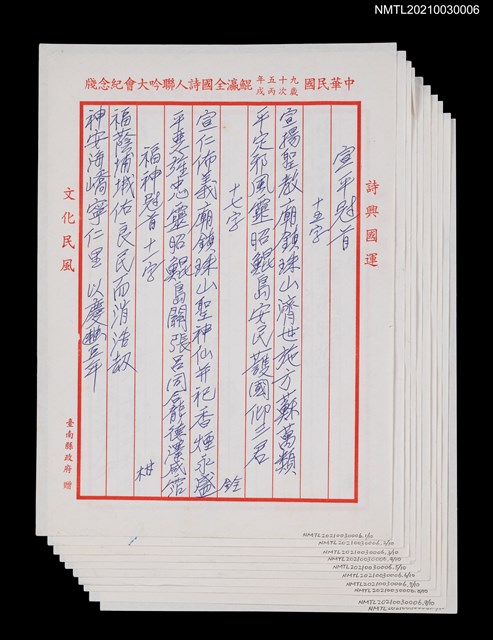 NMTL20210030006
中華民國九十五年歲次丙戌鯤瀛全國詩人聯吟大會紀念牋
詩興國運
宣平慰首
十五字
宣揚聖教廟鎮珠山濟世施方蘇萬類
平定邪風靈昭鯤島安民護國仰三君
十七字
宣仁佈義廟鎮珠山聖神仙并祀香煙永盛
銓
平 忠靈昭鯤島關張呂同龕德澤咸霑
福神慰首十一字
柑
福蔭埔城佑良民而消浩劫
神安海嶠寧仁里以慶豐年
文化民風
臺南縣政府 贈
NMTL20210030006.1/10
NMTL20210030006.2/10
NMTL20210030006.3/10
NMTL20210030006.4/10
NMTL20210030006.5/10
NMTL20210030006.6/10
NMTL20210030006.7/10
NMTL20210030006.8/10
NMTL20210030006.9/10
NMTL20210030006.10/10